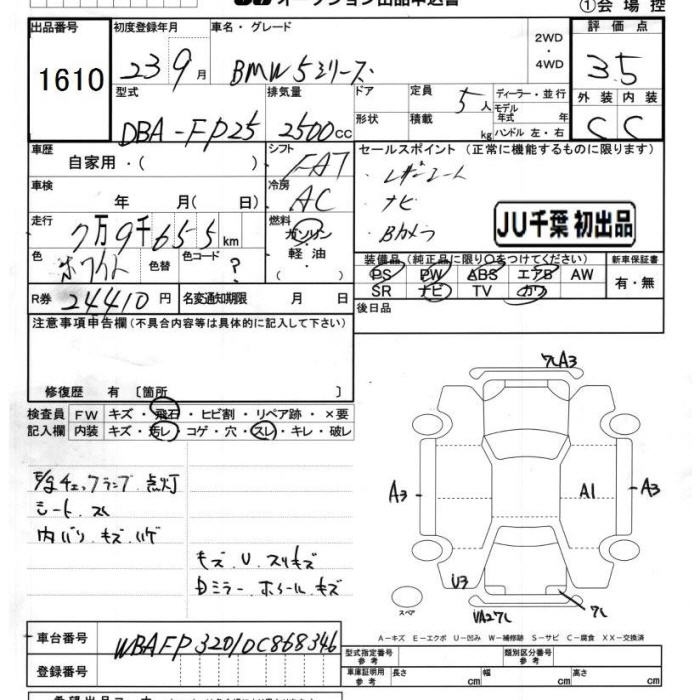 オークション出品申込書
①会場控
出品番号 初度登録年月 車名・グレード 2WD ・ 4WD 評価点
1610 23 9月 BMW 5シリーズ 3.5
型式 排気量 ドア 定員 ディーラー・並行 外装 内装
DBA-FP25 2500cc 5人 モデル年式 年 C C
形状 積載 kg ハンドル 左・右
車歴 シフト セールスポイント (正常に機能するものに限ります)
自家用・( ) FAT レザーシート
車検 冷房 ナビ
年 月 ( 日) AC Bカメラ
JU千葉 初出品
走行 燃料
7万9千655km ガソリン
色 色替 色コード 軽油 装備品 (純正品に限り○をつけてください) 新車保証書
ホワイト ? ( ) PS PW ABS エアB AW 有・無
R券 24410円 名変通知期限 月 日 SR ナビ TV カワ
注意事項申告欄 (不具合内容等は具体的に記入して下さい) 後日品
修復歴 有 〔箇所 〕
検査員 FW キズ・飛石・ヒビ割・リペア跡・×要
記入欄 内装 キズ・汚レ・コゲ・穴・スレ・キレ・破レ
ワレA3
E/gチェックランプ 点灯
シート スレ
内バリ キズ ハゲ
A3 A1 A3
キズ U スリキズ
Dミラー ホイール キズ
U3
スペア VA2ワレ ワレ
A-キズ E-エクボ U-凹み W-補修跡 S-サビ C-腐食 XX-交換済
車台番号 WBAFP32010C868346
型式指定番号 参考 類別区分番号 参考
登録番号 車庫証明用 参考 長さ cm 幅 cm 高さ cm